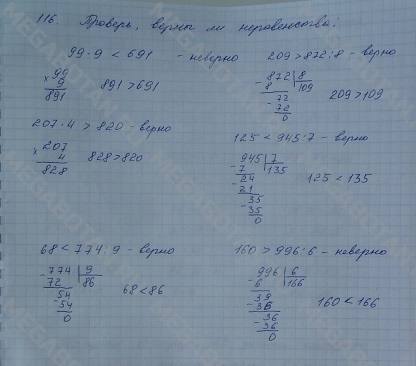 116. Проверь, верны ли неравенства:
99·9 < 691 - неверно
209 > 872:8 - верно
× 99
9
891
891 > 691
- 872 | 8
8 | 109
- 72
72
0
209 > 109
207·4 > 820 - верно
125 < 945:7 - верно
× 207
4
828
828 > 820
- 945 | 7
7 | 135
- 24
21
- 35
35
0
125 < 135
68 < 774:9 - верно
160 > 996:6 - неверно
- 774 | 9
72 | 86
- 54
54
0
68 < 86
- 996 | 6
6 | 166
39
- 36
- 36
36
0
160 < 166